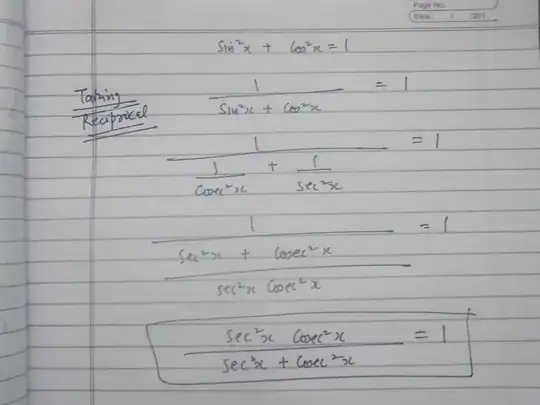 Page No.
Date / /201
sin²x + cos²x = 1
Taking
Reciprocal
1 / (sin²x + cos²x) = 1
1 / (1/cosec²x + 1/sec²x) = 1
1 / ((sec²x + cosec²x) / (sec²x cosec²x)) = 1
(sec²x cosec²x) / (sec²x + cosec²x) = 1